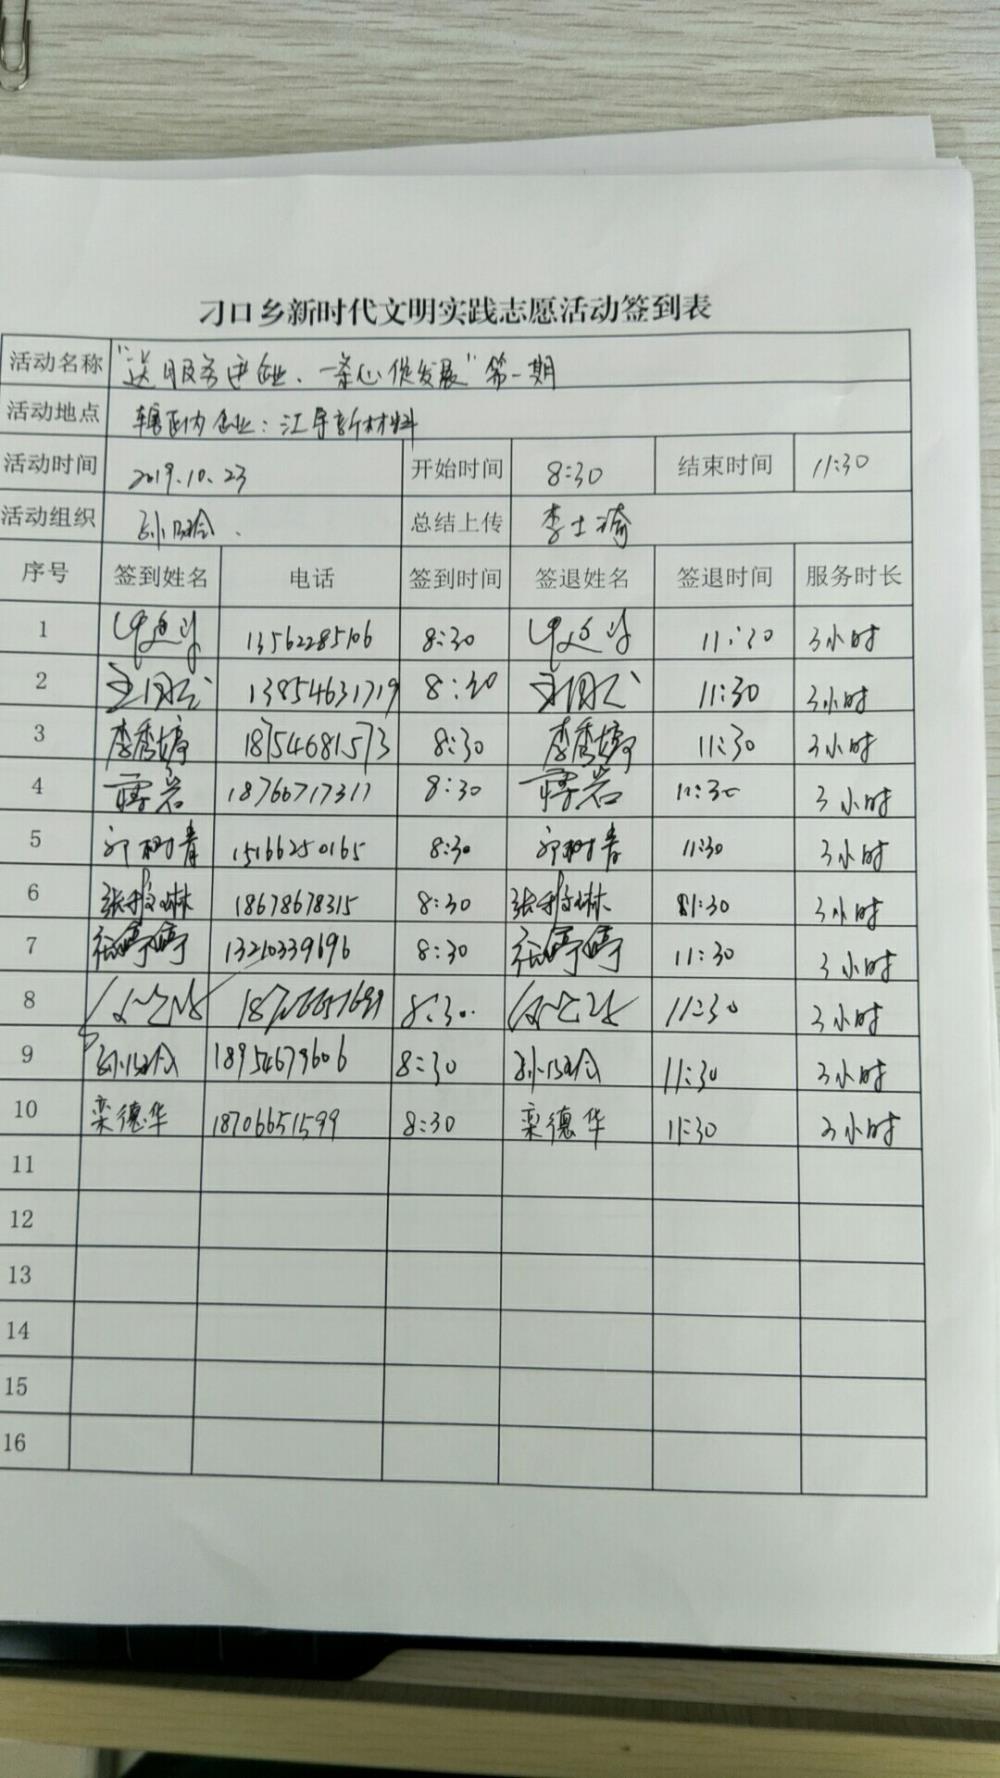 刁口乡新时代文明实践志愿活动签到表
活动名称 "送服务进企业、一条心促发展"第一期
活动地点 辖区内企业：江导新材料
活动时间 2019.10.23 开始时间 8:30 结束时间 11:30
活动组织 总结上传 李士琦
序号 签到姓名 电话 签到时间 签退姓名 签退时间 服务时长
1 13562285106 8:30 11:30 3小时
2 13854631719 8:30 11:30 3小时
3 李秀婷 18754681573 8:30 李秀婷 11:30 3小时
4 18766717311 8:30 11:30 3小时
5 15166250165 8:30 11:30 3小时
6 18678678315 8:30 11:30 3小时
7 13210339696 8:30 11:30 3小时
8 8:30 11:30 3小时
9 18954679606 8:30 11:30 3小时
10 栾德华 18706651599 8:30 栾德华 11:30 3小时
11
12
13
14
15
16